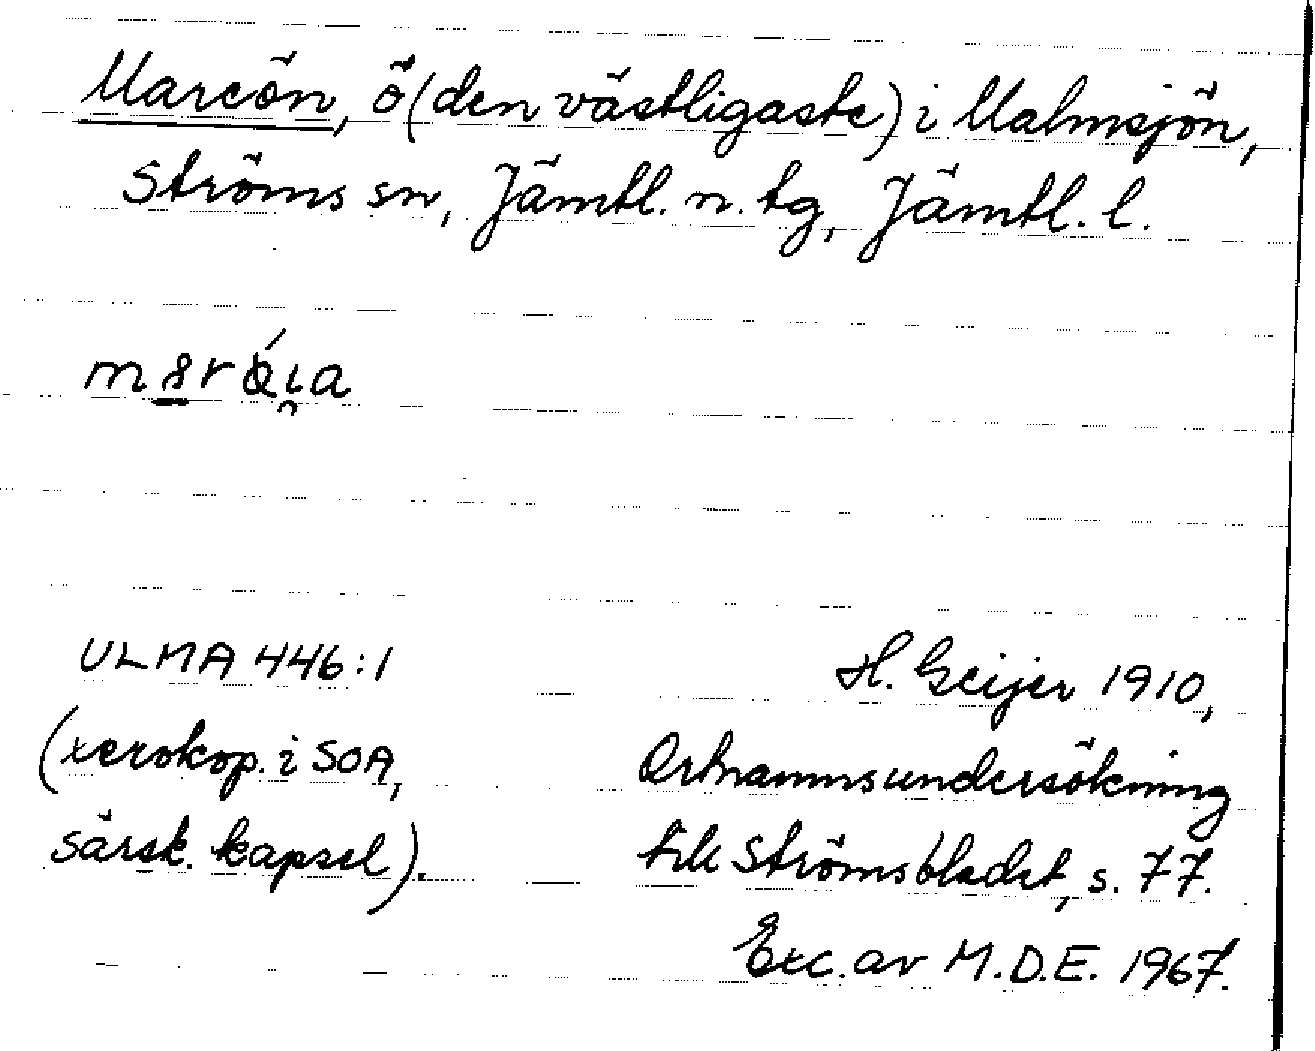 Mareön, ö (den västligaste) i Malmsjön,
Ströms sn, Jämtl. n. tg, Jämtl. l.
ULMA 446:1
(xerokop. i SOA,
särsk. kapsel).
H. Geijer 1910,
Ortnamnsundersökning
till Strömsbladet, s. 77.
Exc. av M.D.E. 1967.